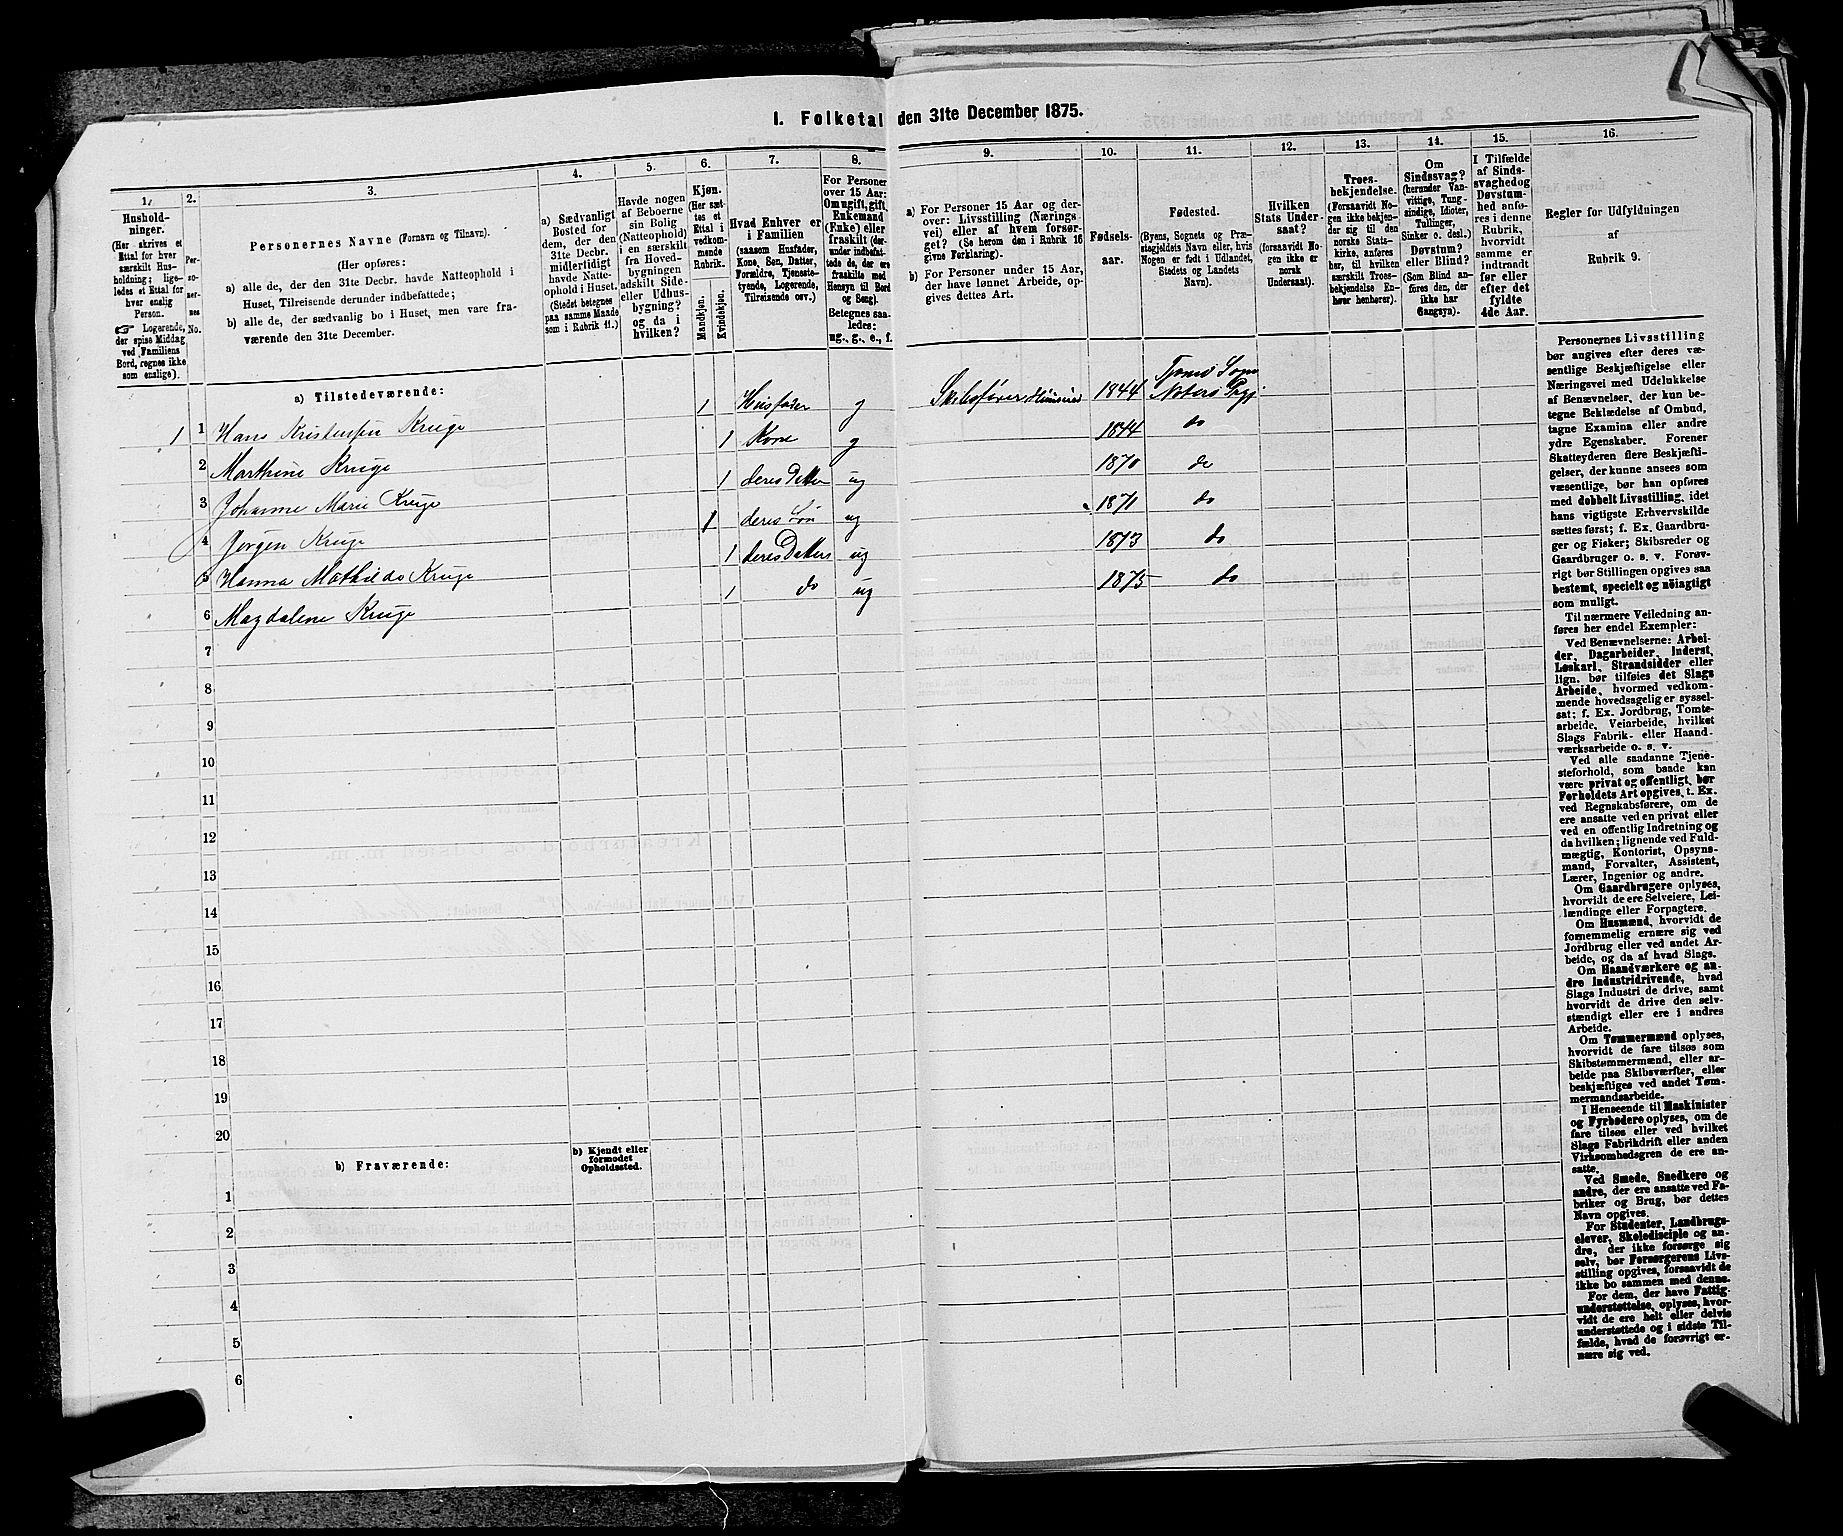 I. Folketal den 31te December 1875.
1.
2.
3.
4.
5.
6.
7.
8.
9.
10.
11.
12.
13.
14.
15.
16.
Hushold-
ninger.
(Her skrives et
Ettal for hver
særskilt Hus-
holdning; lige-
ledes et Ettal for
hver enslig
Person.
☞ Logerende,
der spise Middag
ved Familiens
Bord, regnes ikke
som enslige).
Per-
so-
ner-
nes
No.
Personernes Navne (Fornavn og Tilnavn).
(Her opføres:
a) alle de, der den 31te Decbr. havde Natteophold i
Huset, Tilreisende derunder indbefattede;
b) alle de, der sædvanlig bo i Huset, men vare fra-
værende den 31te December.
a) Sædvanligt
Bosted for
dem, der den
31te Decbr.
midlertidigt
havde Natte-
ophold i Huset.
(Stedet betegnes
paa samme Maade
som i Rubrik 11.)
Havde nogen
af Beboerne
sin Bolig
(Natteophold)
i en særskilt
fra Hoved-
bygningen
adskilt Side-
eller Udhus-
bygning?
og da i
hvilken?
Kjøn.
(Her sæt-
tes et
Ettal i
vedkom-
mende
Rubrik.
Mandkjøn.
Kvindekjøn.
Hvad Enhver er
i Familien
(saasom Husfader,
Kone, Søn, Datter,
Forældre, Tjeneste-
tyende, Logerende,
Tilreisende osv.)
For Personer
over 15 Aar:
Om ugift, gift,
Enkemand
(Enke) eller
fraskilt (der-
under indbefat-
tede de, der ere
fraskilte med
Hensyn til Bord
og Seng).
Betegnes saa-
ledes:
ug., g., e., f.
a) For Personer 15 Aar og der-
over: Livsstilling (Nærings
vei) eller af hvem forsør-
get? (Se herom den i Rubrik 16
givne Forklaring).
b) For Personer under 15 Aar,
der have lønnet Arbeide, op-
gives dettes Art.
Fødsels-
aar.
Fødested.
(Byens, Sognets og Præ-
stegjeldets Navn eller, hvis
Nogen er født i Udlandet,
Stedets og Landets
Navn).
Hvilken
Stats Under-
saat?
(forsaavidt No-
gen ikke er
norsk
Undersaat).
Troes-
bekjendelse.
(Forsaavidt No-
gen ikke bekjen-
der sig til den
norske Stats-
kirke, anføres
her, til hvilken
særskilt Troes-
bekjendelse En-
hver henhører).
Om
Sindssvag?
(herunder Van-
vittige, Tung-
sindige, Idioter,
Tullinger,
Sinker o. desl.)
Døvstum?
eller Blind?
(Som Blind an-
føres den, der
ikke har
Gangsyn).
I Tilfælde
af Sinds-
svaghed og
Døvstum-
hed anfø-
res i denne
Rubrik,
hvorvidt
samme er
indtraadt
før eller
efter det
fyldte
4de Aar.
Regler for Udfyldningen
af
Rubrik 9.
a) Tilstedeværende:
1 1 Hans Kristensen Kruge 1 Husfader g Skibsfører 1844 Tjømø Sogn
Nøterø Prgj
2 Marthine Kruge 1 Kone g 1844 do
3 Johanne Marie Kruge 1 deres Datter ug 1870 do
4 Jørgen Kruge 1 deres Søn ug 1871 do
5 Hanna Mathilde Kruge 1 deres Datter ug 1873 do
6 Magdalene Kruge 1 do ug 1875 do
7
8
9
10
11
12
13
14
15
16
17
18
19
20
b) Fraværende:
b) Kjendt eller
formodet
Opholdssted.
1
2
3
4
5
6
Personernes Livsstilling
bør angives efter deres væ-
sentlige Beskjæftigelse eller
Næringsvei med Udelukkelse
af Benævnelser, der kun be-
tegne Beklædelse af Ombud,
tagne Examina eller andre
ydre Egenskaber. Forener
Skatteyderen flere Beskjæfti-
gelser, der kunne ansees som
væsentlige, bør han opføres
med dobbelt Livsstilling, idet
hans vigtigste Erhvervskilde
sættes først; f. Ex. Gaardbru-
ger og Fisker; Skibsreder og
Gaardbruger o. s. v. Forøv-
rigt bør Stillingen opgives saa
bestemt, specielt og nöiagtigt
som muligt.
Til nærmere Veiledning an-
føres her endel Exempler:
Ved Benævnelserne: Arbei-
der, Dagarbeider, Inderst,
Løskarl, Strandsidder eller
lign. bør tilføies det Slags
Arbeide, hvormed vedkom-
mende hovedsagelig er syssel-
sat; f. Ex. Jordbrug, Tomte-
arbeide, Veiarbeide, hvilket
Slags Fabrik- eller Haand-
værksarbeide o. s. v.
Ved alle saadanne Tjene-
steforhold, som baade kan
være privat og offentligt, bør
Forholdets Art opgives, t. Ex.
ved Regnskabsførere, om de
ere ansatte ved en privat eller
ved en offentlig Indretning og
da hvilken; lignende ved Fuld-
mægtig, Kontorist, Opsyns-
mand, Forvalter, Assistent,
Lærer, Ingeniør og andre.
Om Gaardbrugere oplyses,
hvorvidt de ere Selveiere, Lei-
lændinge eller Forpagtere.
Om Husmænd, hvorvidt de
fornemmelig ernære sig ved
Jordbrug eller ved andet Ar-
beide, og da af hvad Slags.
Om Haandværkere og an-
dre Industridrivende, hvad
Slags Industri de drive, samt
hvorvidt de drive den selv-
stændigt eller ere i andres
Arbeide.
Om Tømmermænd oplyses,
hvorvidt de fare tilsøs som
Skibstømmermænd, eller ar-
beide paa Skibsværfter, eller
beskjæftiges ved andet Tøm-
mermandsarbeide.
I Henseende til Maskinister
og Fyrbødere oplyses, om de
fare tilsøs eller ved hvilket
Slags Fabrikdrift eller anden
Virksomhedsgren de ere an-
satte.
Ved Smede, Snedkere og
andre, der ere ansatte ved Fa-
briker og Brug, bør dettes
Navn opgives.
For Studenter, Landbrugs-
elever, Skoledisciple og an-
dre, der ikke forsørge sig
selv, bør Forsørgerens Livs-
stilling opgives, forsaavidt de
ikke bo sammen med denne.
For dem, der have Fattig-
understøttelse, oplyses, hvor-
vidt de ere helt eller delvis
understøttede og i sidste Til-
fælde, hvad de forøvrigt er-
nære sig ved.